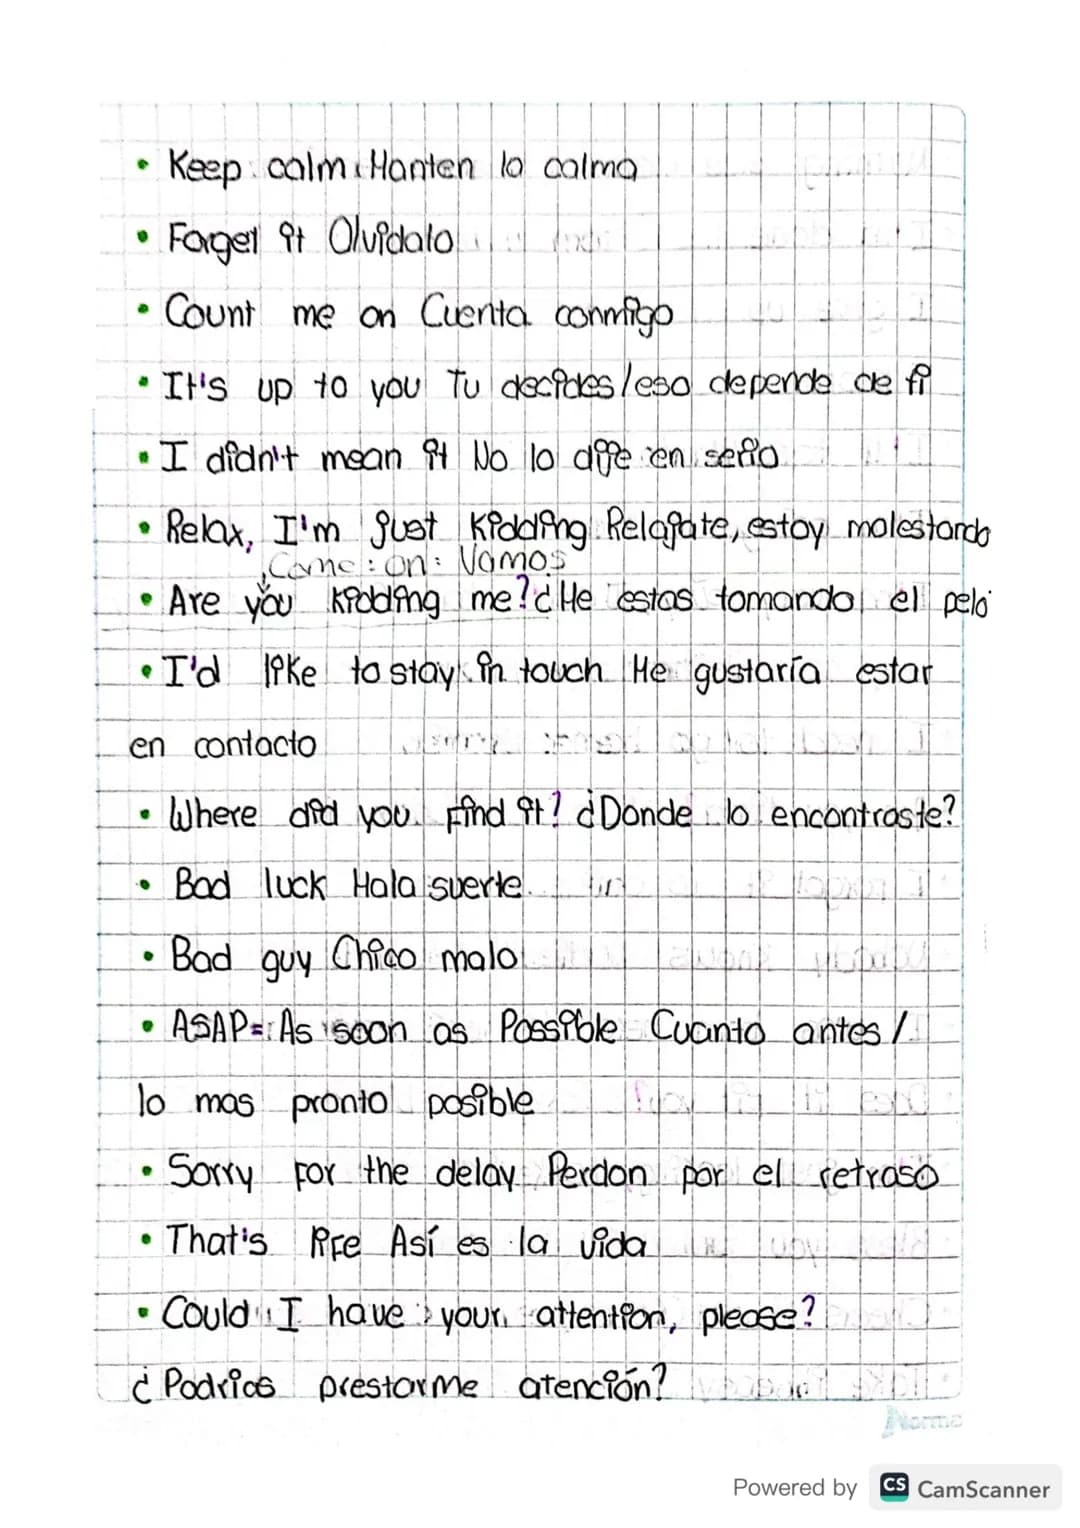 • Keep calm: Manten la calma
• Forget it Olvidalo
• Count me on Cuenta conmigo
• It's up to you Tu decides/eso depende de ti
• I didn't mean it No lo dije en serio
• Relax, I'm just kidding Relajate, estoy molestando
Come: on: Vamos
• Are you kidding me? ¿Me estas tomando el pelo
• I'd like to stay in touch Me gustaría estar
en contacto
• Where did you find it? ¿Donde lo encontraste?
• Bad luck Mala suerte
• Bad guy Chico malo
• ASAP= As soon as Possible Cuanto antes/
lo mas pronto posible
• Sorry for the delay Perdon por el retraso
• That's life Así es la vida
• Could I have your attention, please?
¿Podrias prestarme atención?
Norma
Powered by CS CamScanner